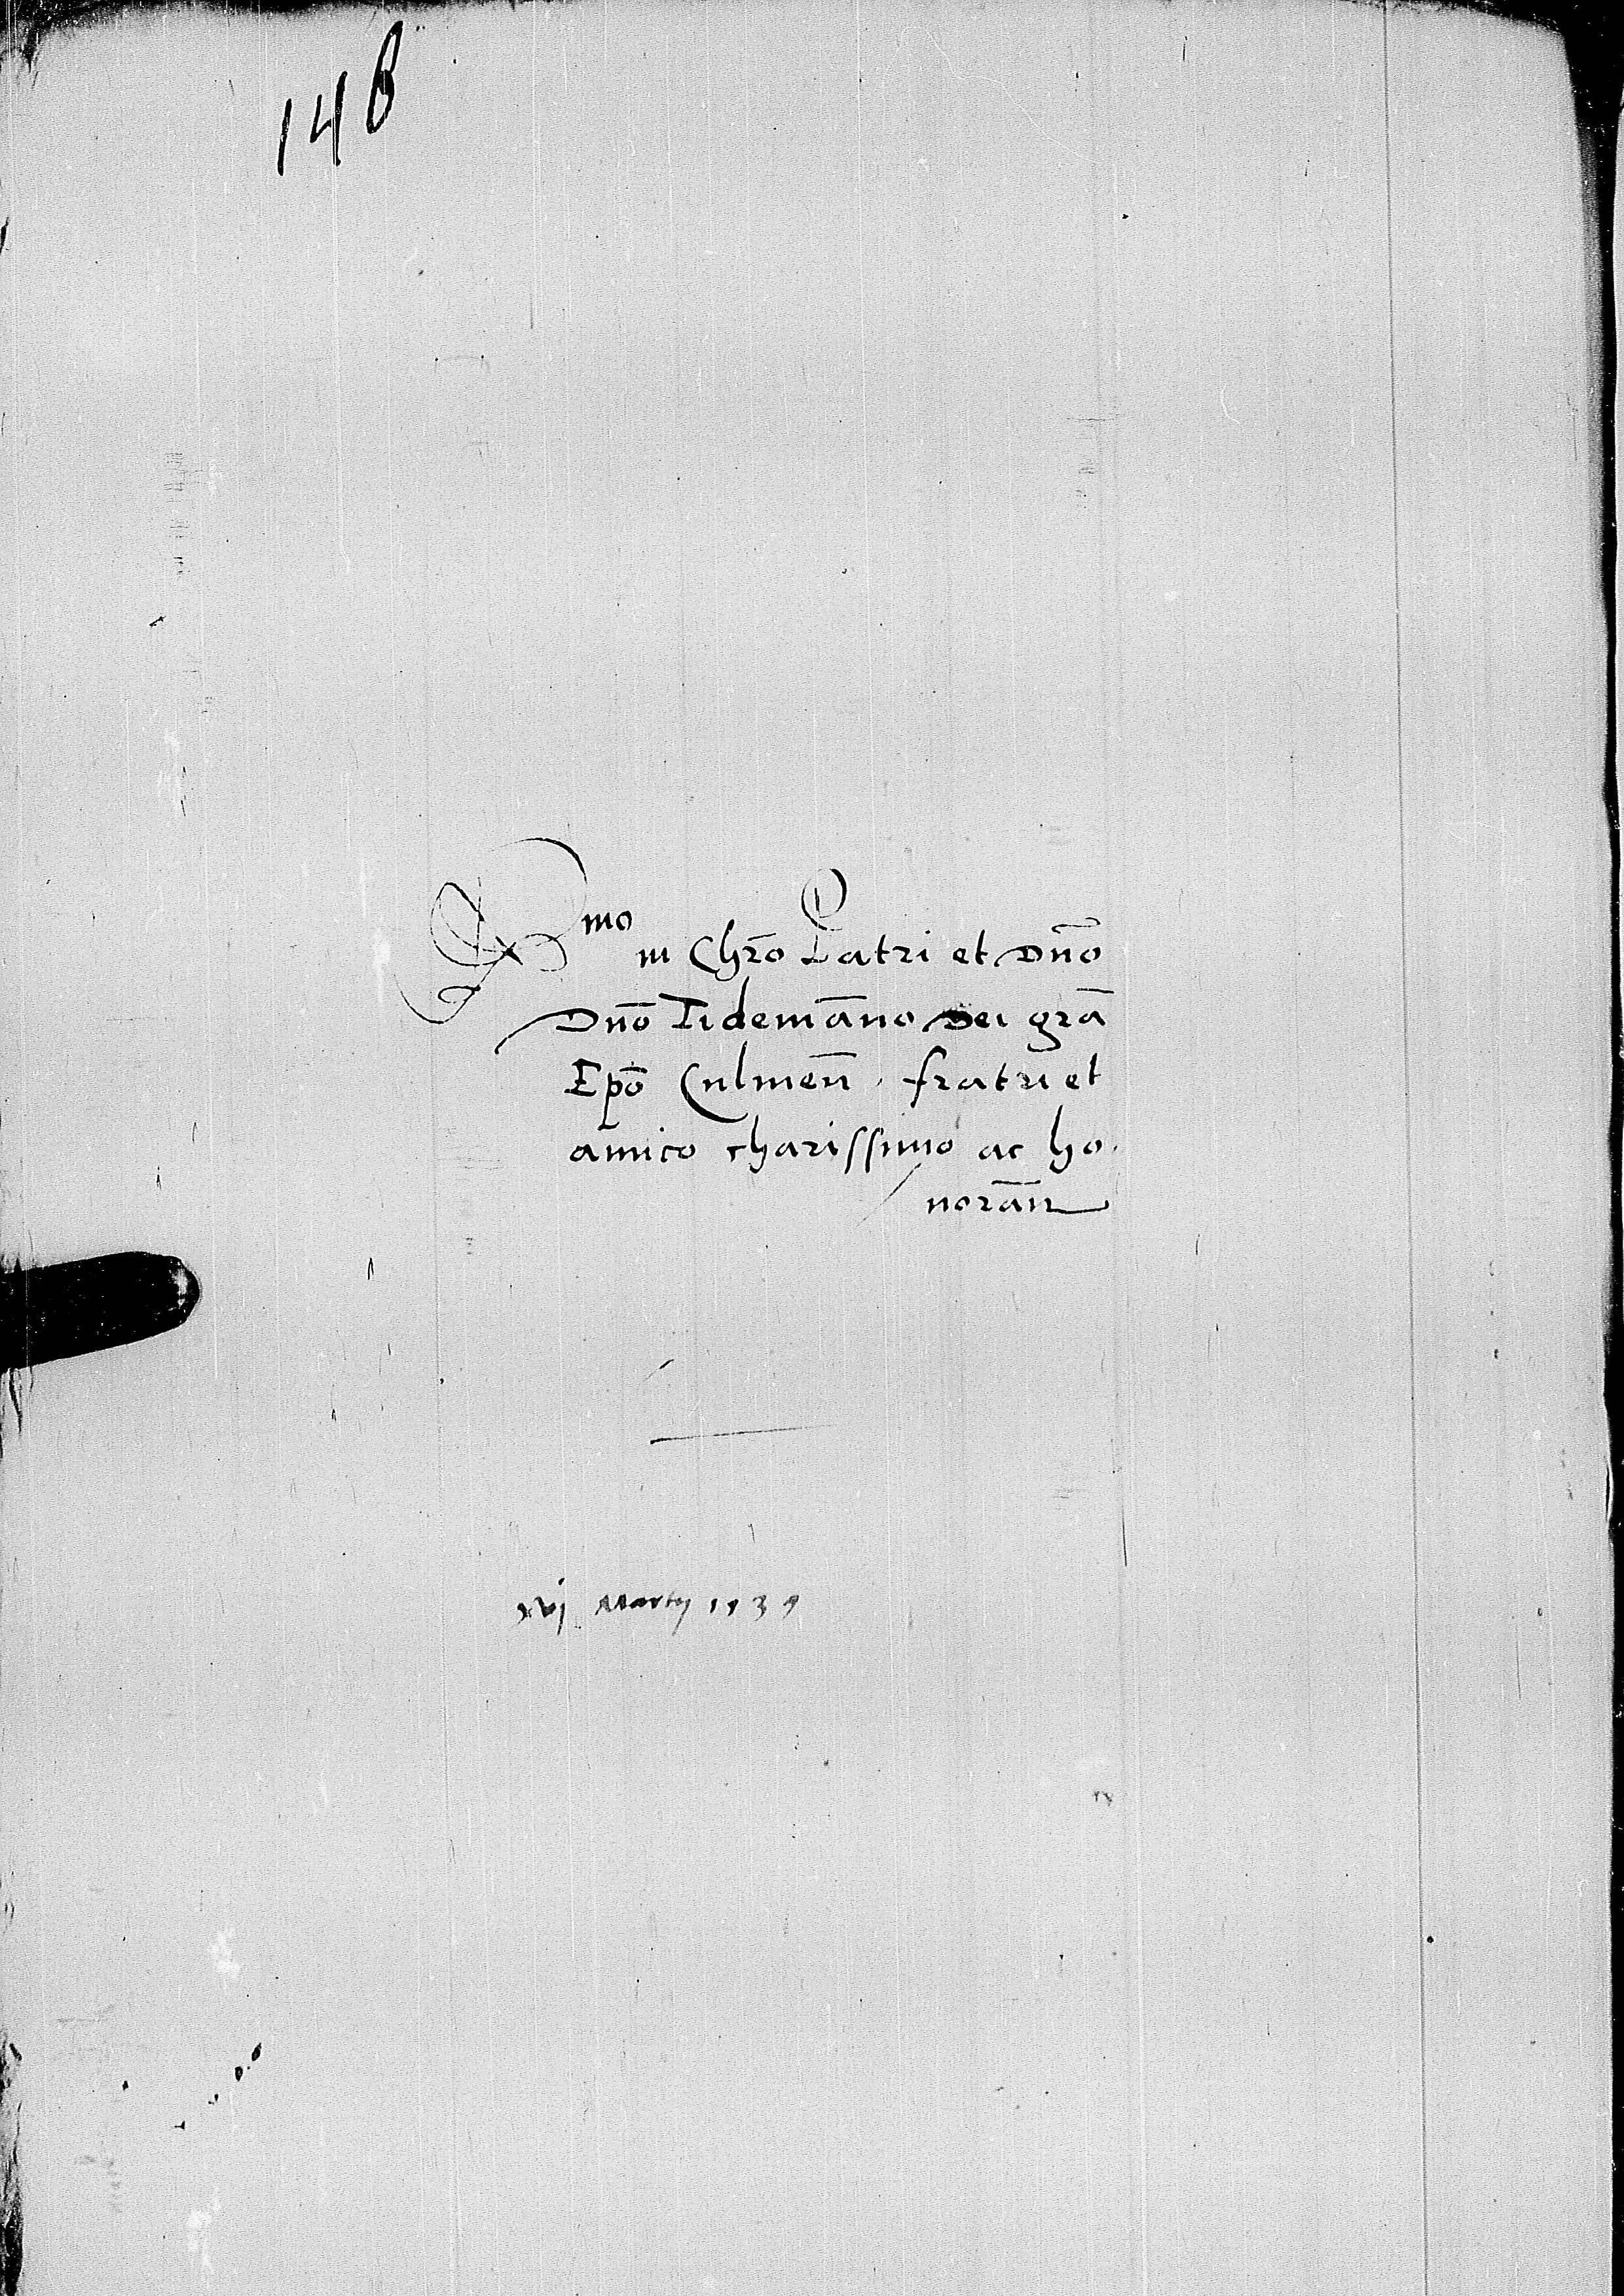 148
R mo in Chr̄o Patri et Dn̄o
Dn̄o Tidemāno Dei gr̄a
Ep̄o Culmen̄. fratri et
amico charissimo ac ho-
noran̄
xvj Martij 1539